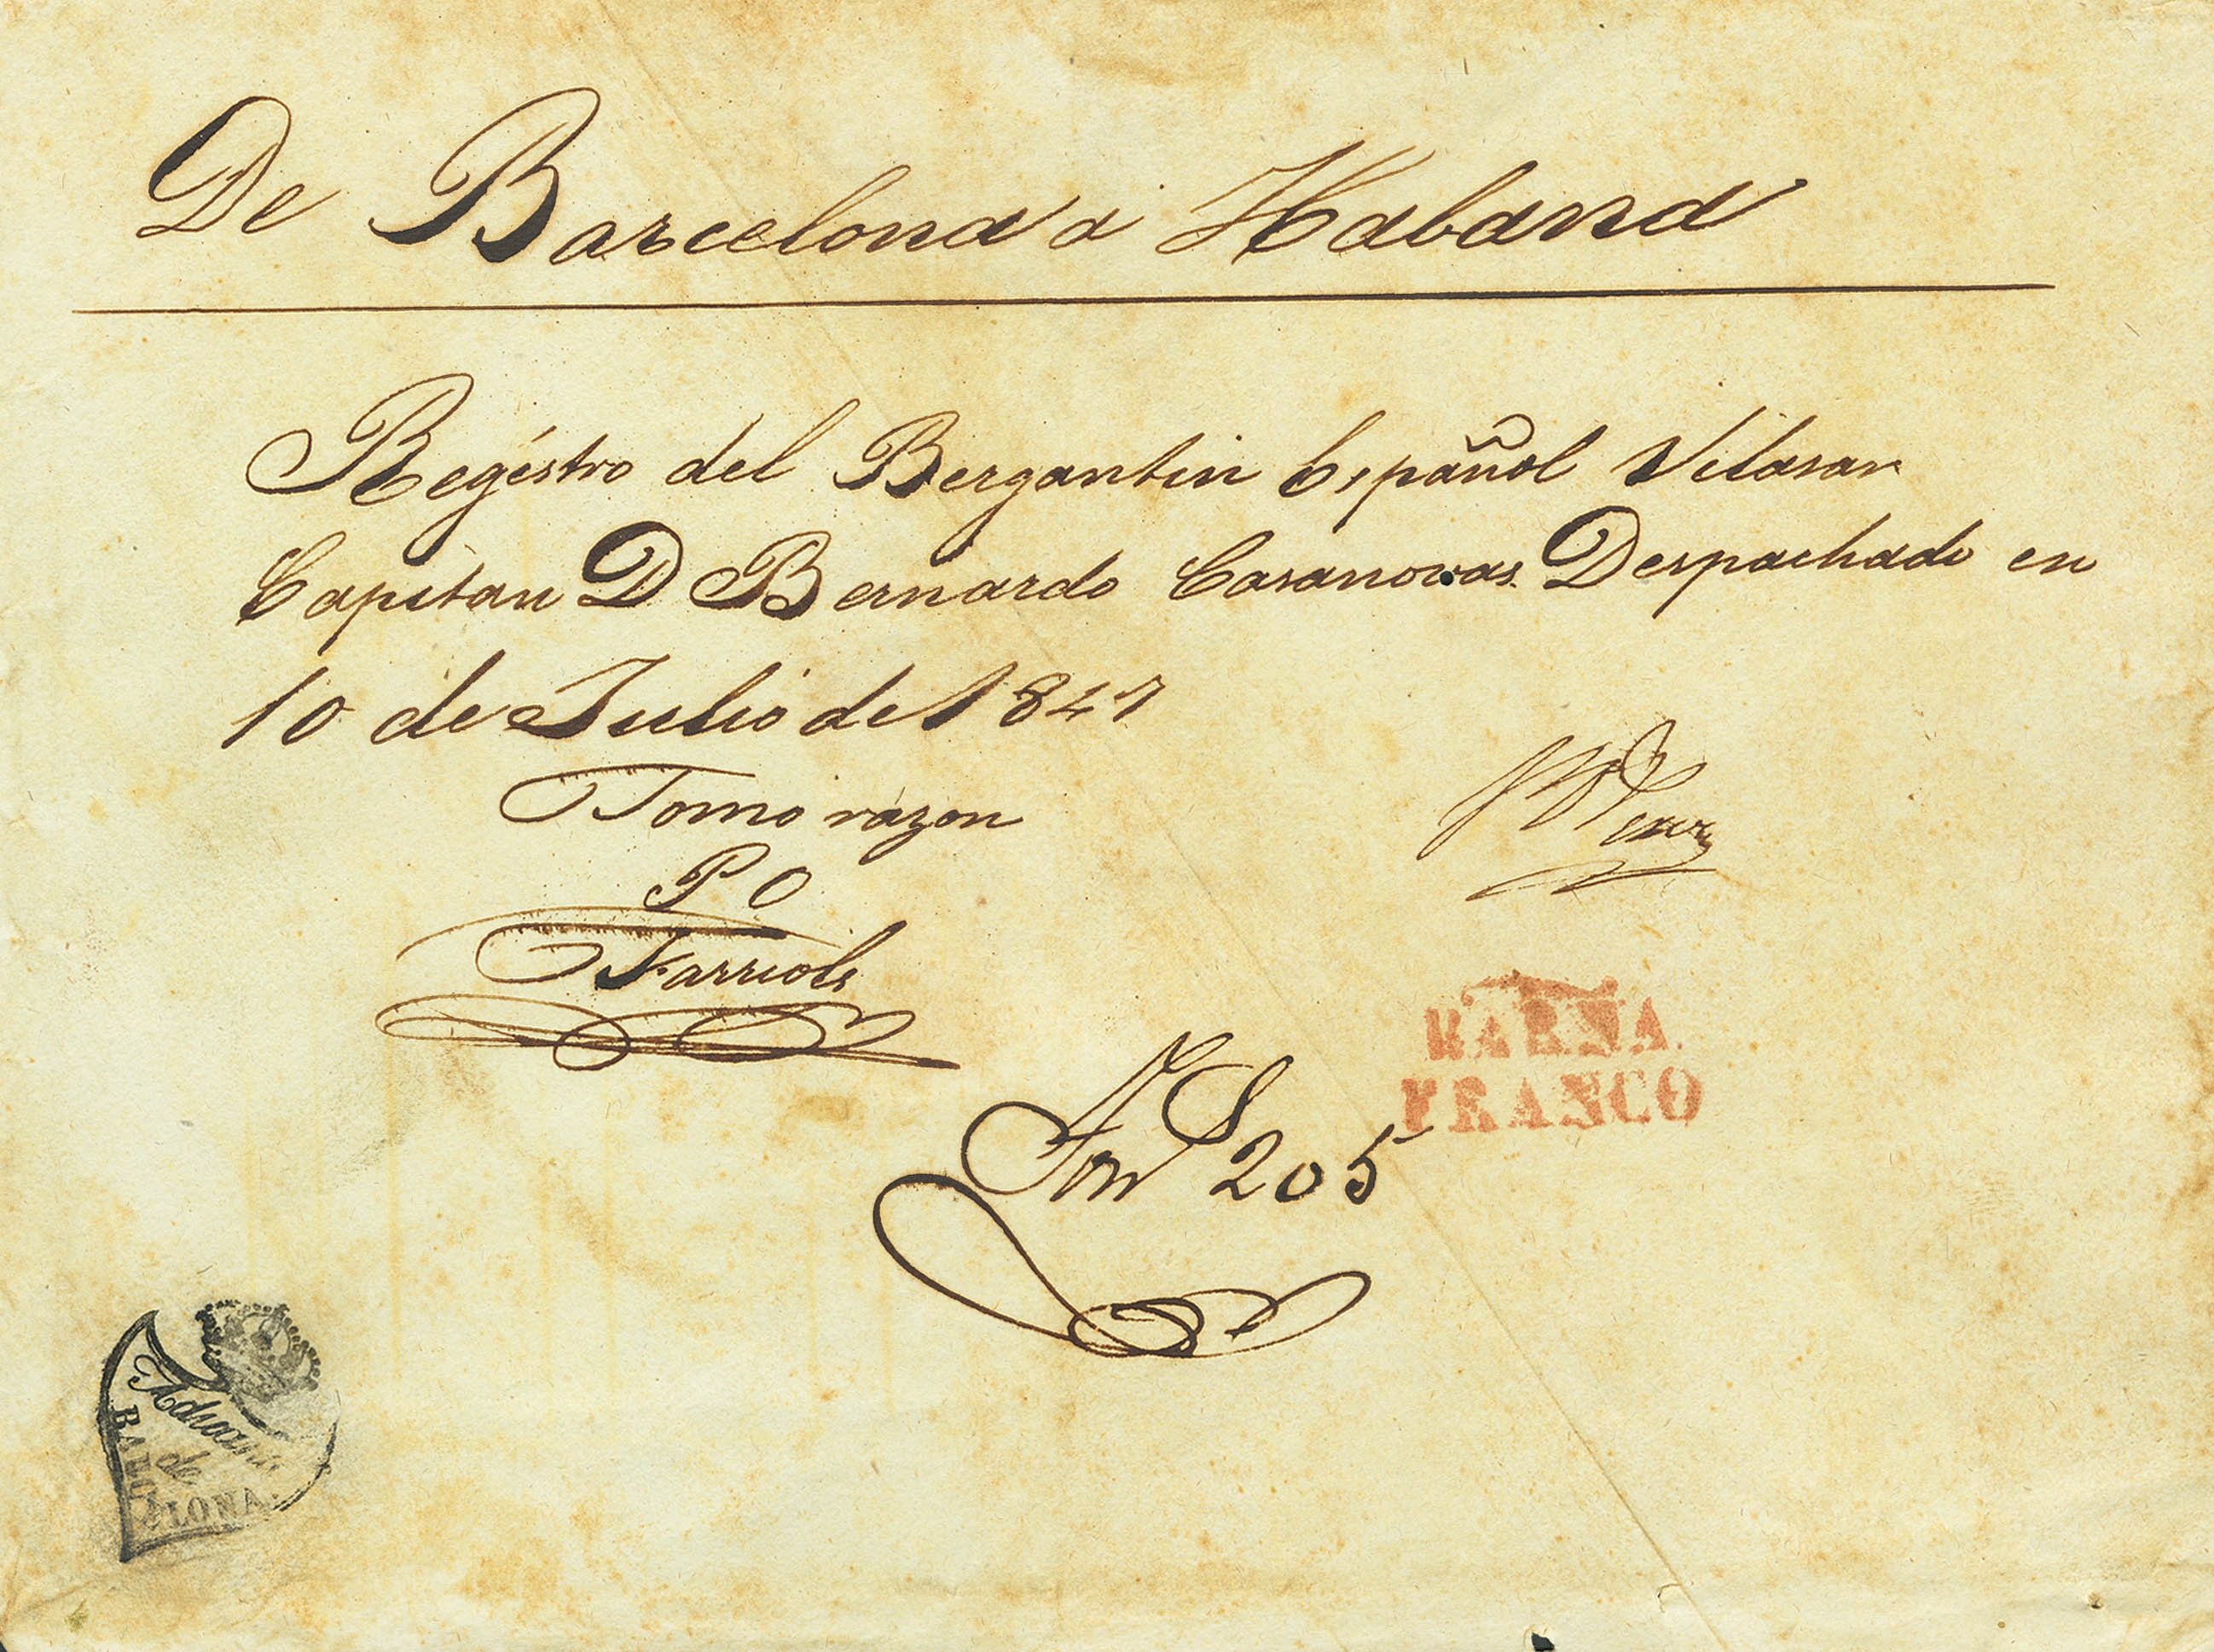 De Barcelona a Habana
Regístro del Bergantin Español Vilasar
Capitan D Bernardo Casanovas Despachado en
10 de Julio de 1847
Tomo razon
P O
Farriols
BARNA.
FRANCO
205
Aduana
de
BARCELONA.